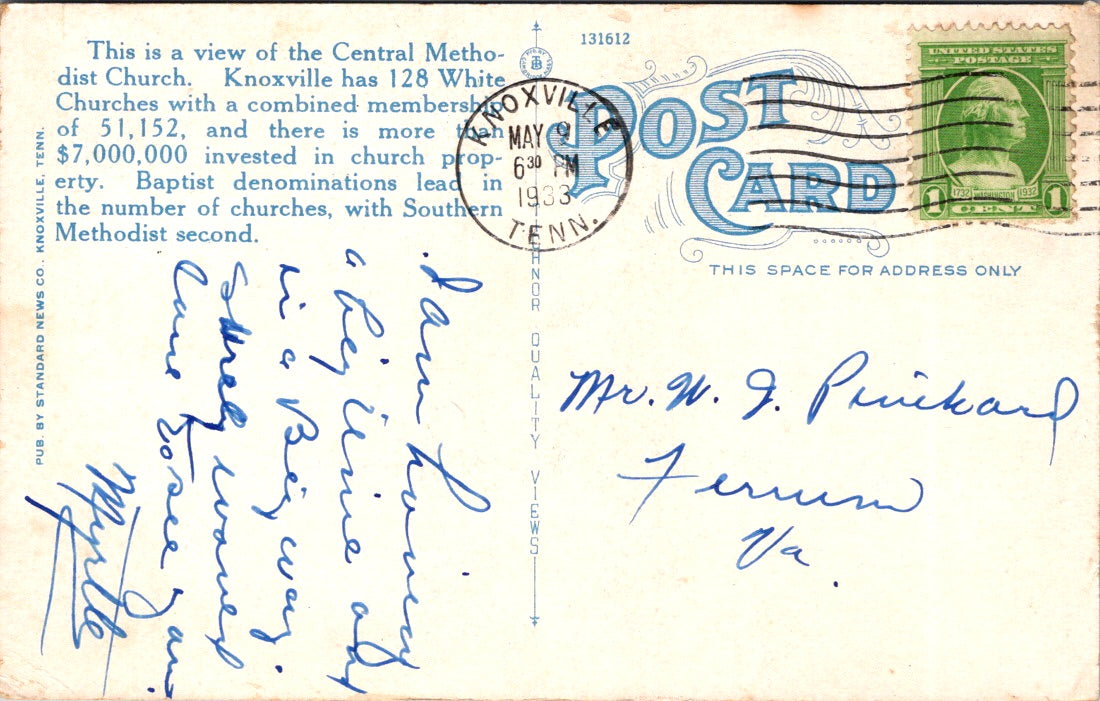 This is a view of the Central Metho-
dist Church. Knoxville has 128 White
Churches with a combined membership
of 51,152, and there is more than
$7,000,000 invested in church prop-
erty. Baptist denominations lead in
the number of churches, with Southern
Methodist second.
PUB. BY STANDARD NEWS CO., KNOXVILLE, TENN.
I am having
a big time
in a Big way.
Surely would
love to see
Myrtle
131612
POST
CARD
KNOXVILLE
MAY 9
6 30 PM
1933
TENN.
UNITED STATES
POSTAGE
1732 WASHINGTON 1932
1 CENT 1
THIS SPACE FOR ADDRESS ONLY
QUALITY VIEWS
Mr. W. I. Pinckard
Ferrum
Va.